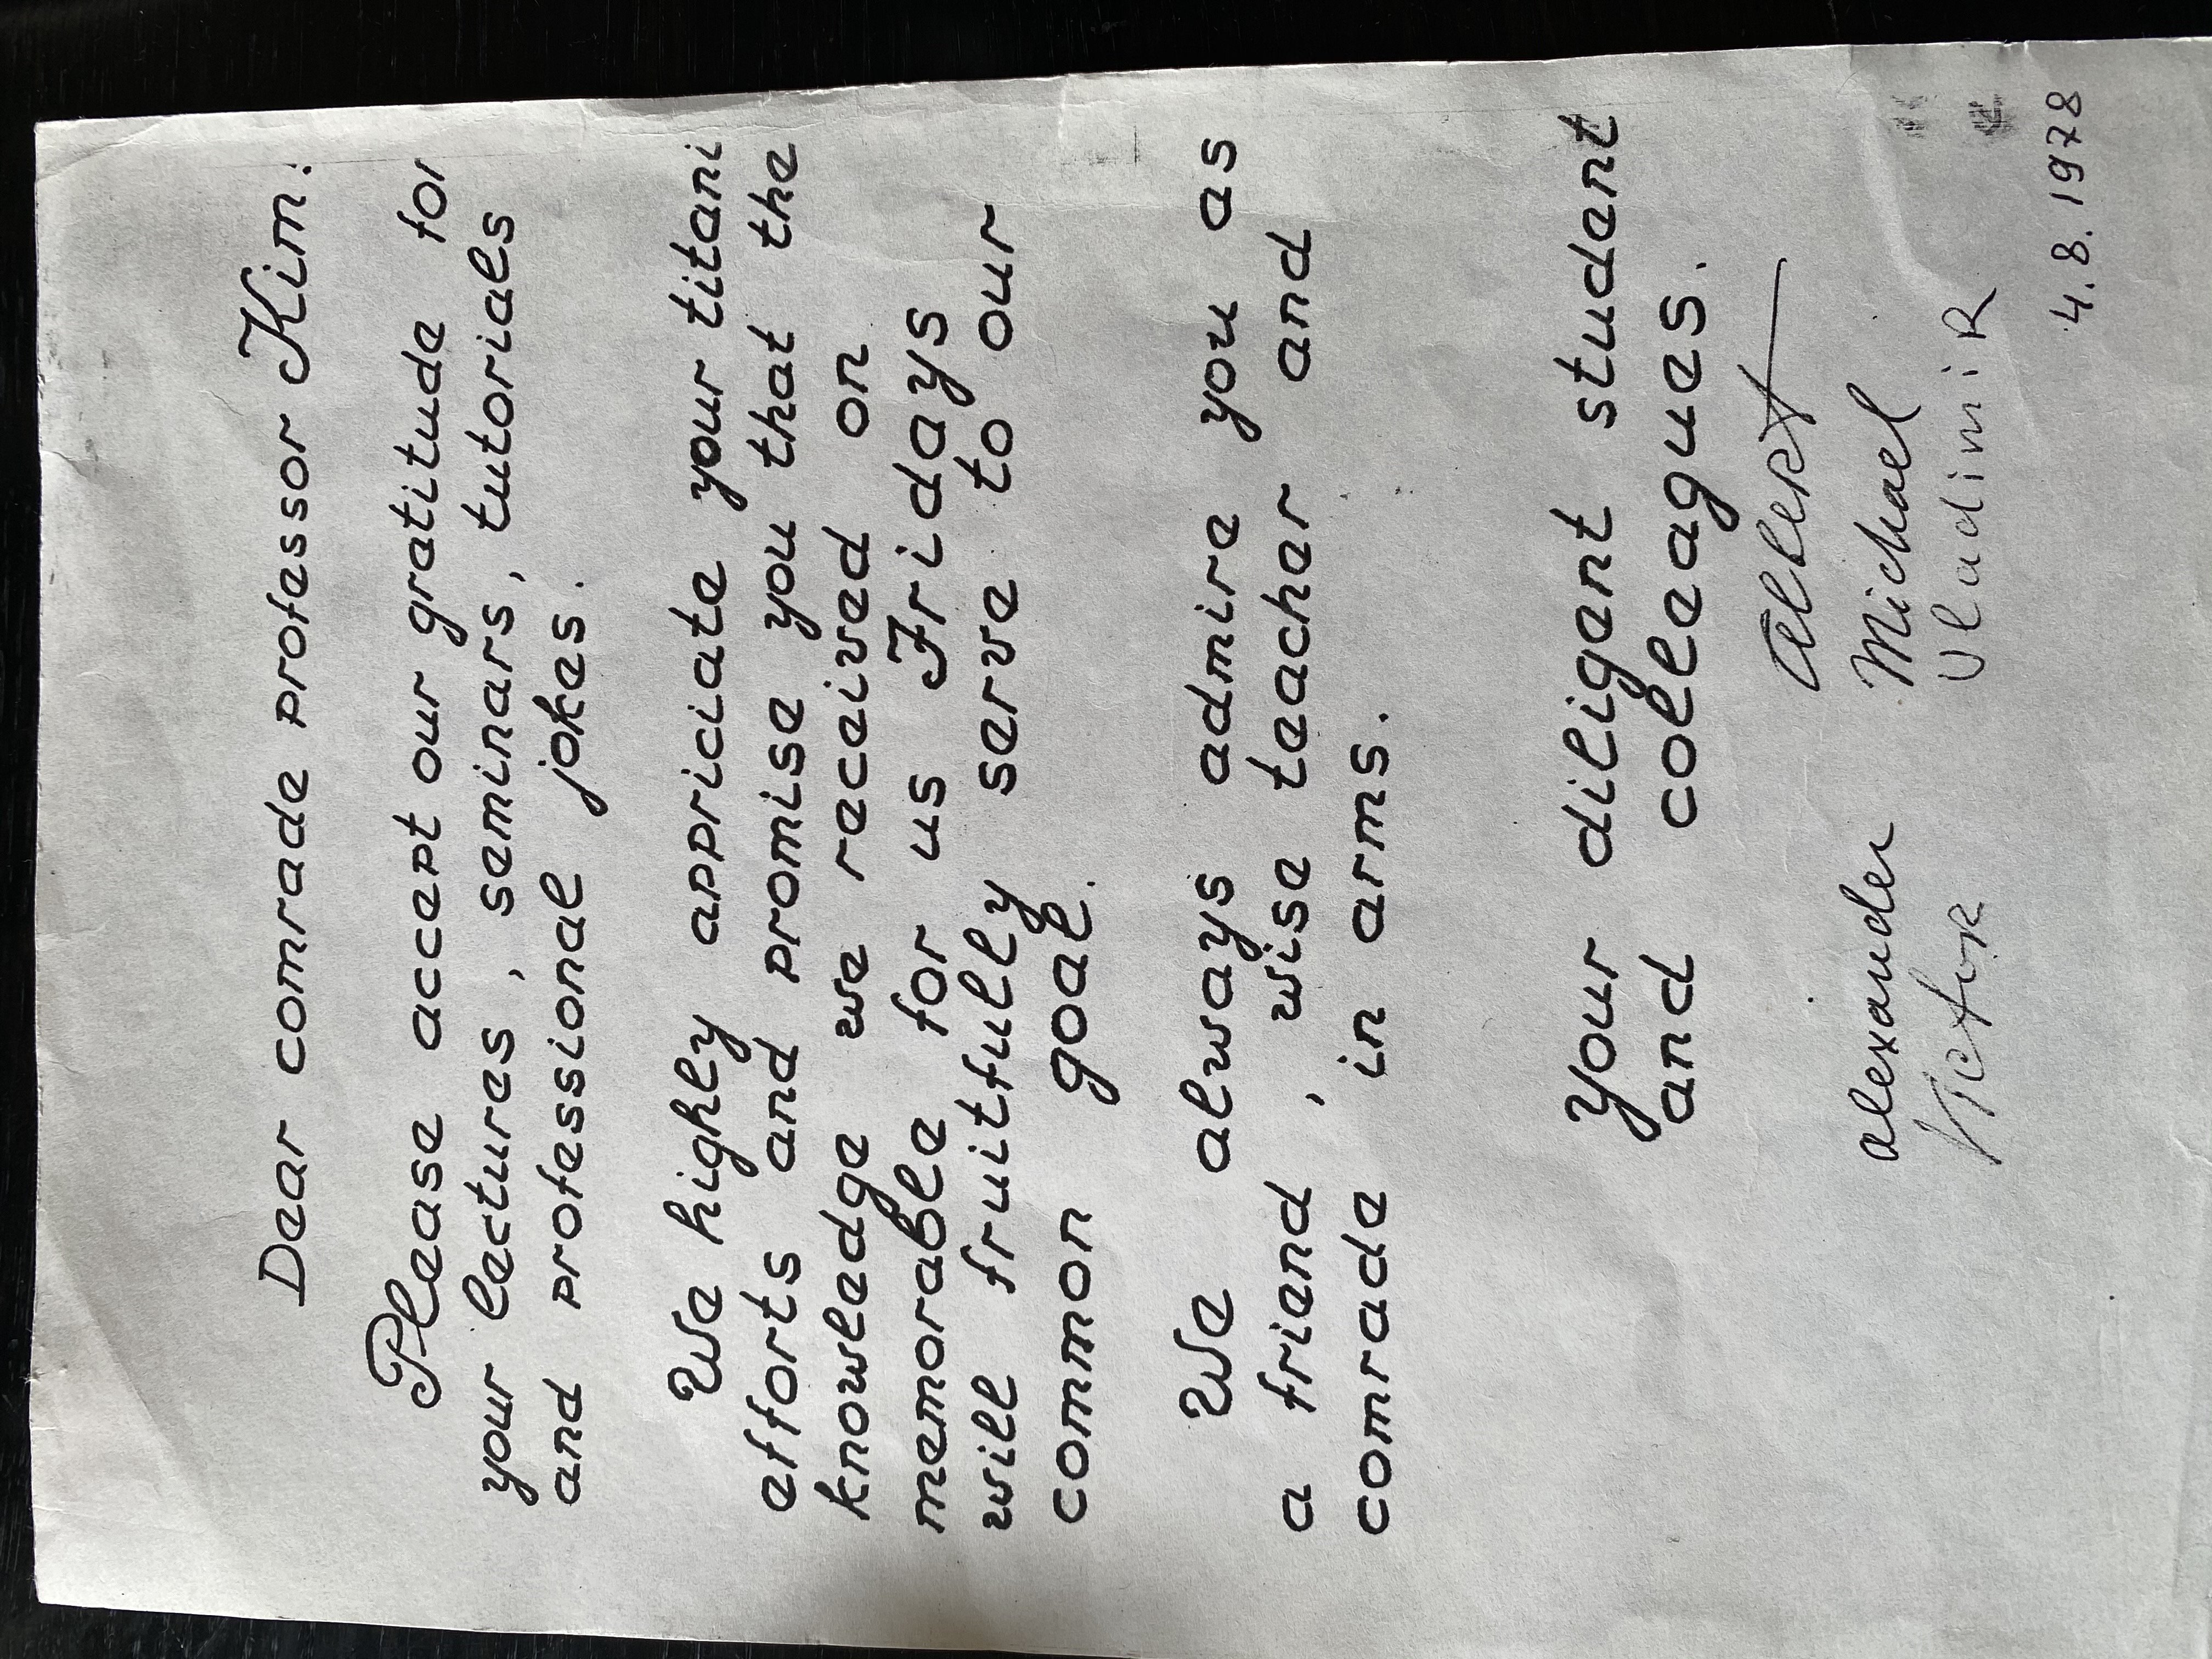 Dear comrade professor Kim!
Please accept our gratitude for
your lectures, seminars, tutorials
and professional jokes.
We highly appriciate your titani
efforts and promise you that the
knowledge we received on
memorable for us Fridays
will fruitfully serve to our
common goal.
We always admire you as
a friend, wise teacher and
comrade in arms.
Your diligent student
and colleagues.
Albert
Alexander Michael
Victor VladimiR
4.8.1978